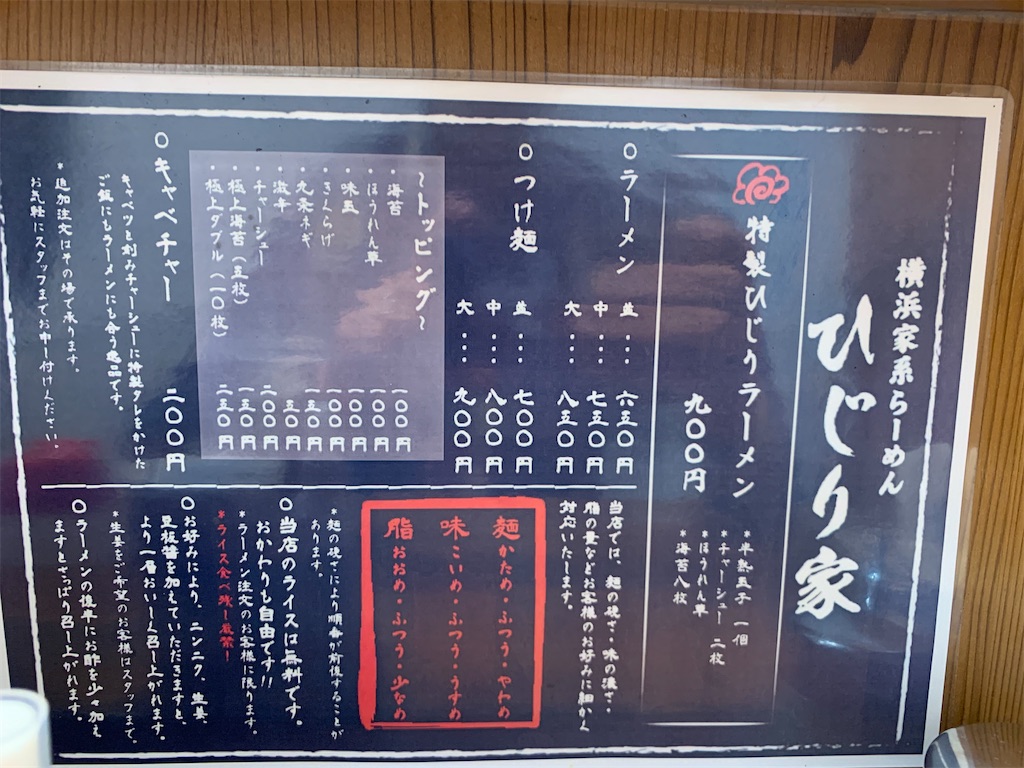 横浜家系らーめん
ひじり家
特製ひじりラーメン
九〇〇円
*半熟玉子 一個
*チャーシュー 二枚
*ほうれん草
*海苔八枚
○ラーメン 並・・・六五〇円
中・・・七五〇円
大・・・八五〇円
○つけ麺 並・・・七〇〇円
中・・・八〇〇円
大・・・九〇〇円
~トッピング~
・海苔 一〇〇円
・ほうれん草 一〇〇円
・味玉 一〇〇円
・きくらげ 一〇〇円
・九条ネギ 一五〇円
・激辛 五〇円
・チャーシュー 二〇〇円
・極上海苔(五枚) 一五〇円
・極上ダブル(一〇枚) 二五〇円
○キャベチャー 二〇〇円
キャベツと刻みチャーシューに特製タレをかけた
ご飯にもラーメンにも合う逸品です。
*追加注文はその場で承ります。
お気軽にスタッフまでお申し付けください。
当店では、麺の硬さ・味の濃さ・
脂の量などお客様のお好みに細かく
対応いたします。
麺 かため・ふつう・やわめ
味 こいめ・ふつう・うすめ
脂 おおめ・ふつう・少なめ
*麺の硬さにより順番が前後することが
あります。
○当店のライスは無料です。
おかわりも自由です!!
*ラーメン注文のお客様に限ります。
*ライス食べ残し厳禁!
○お好みにより、ニンニク、生姜、
豆板醤を加えていただきますと、
より一層おいしく召し上がれます。
*生姜をご希望のお客様はスタッフまで。
○ラーメンの後半にお酢を少々加え
ますとさっぱり召し上がれます。